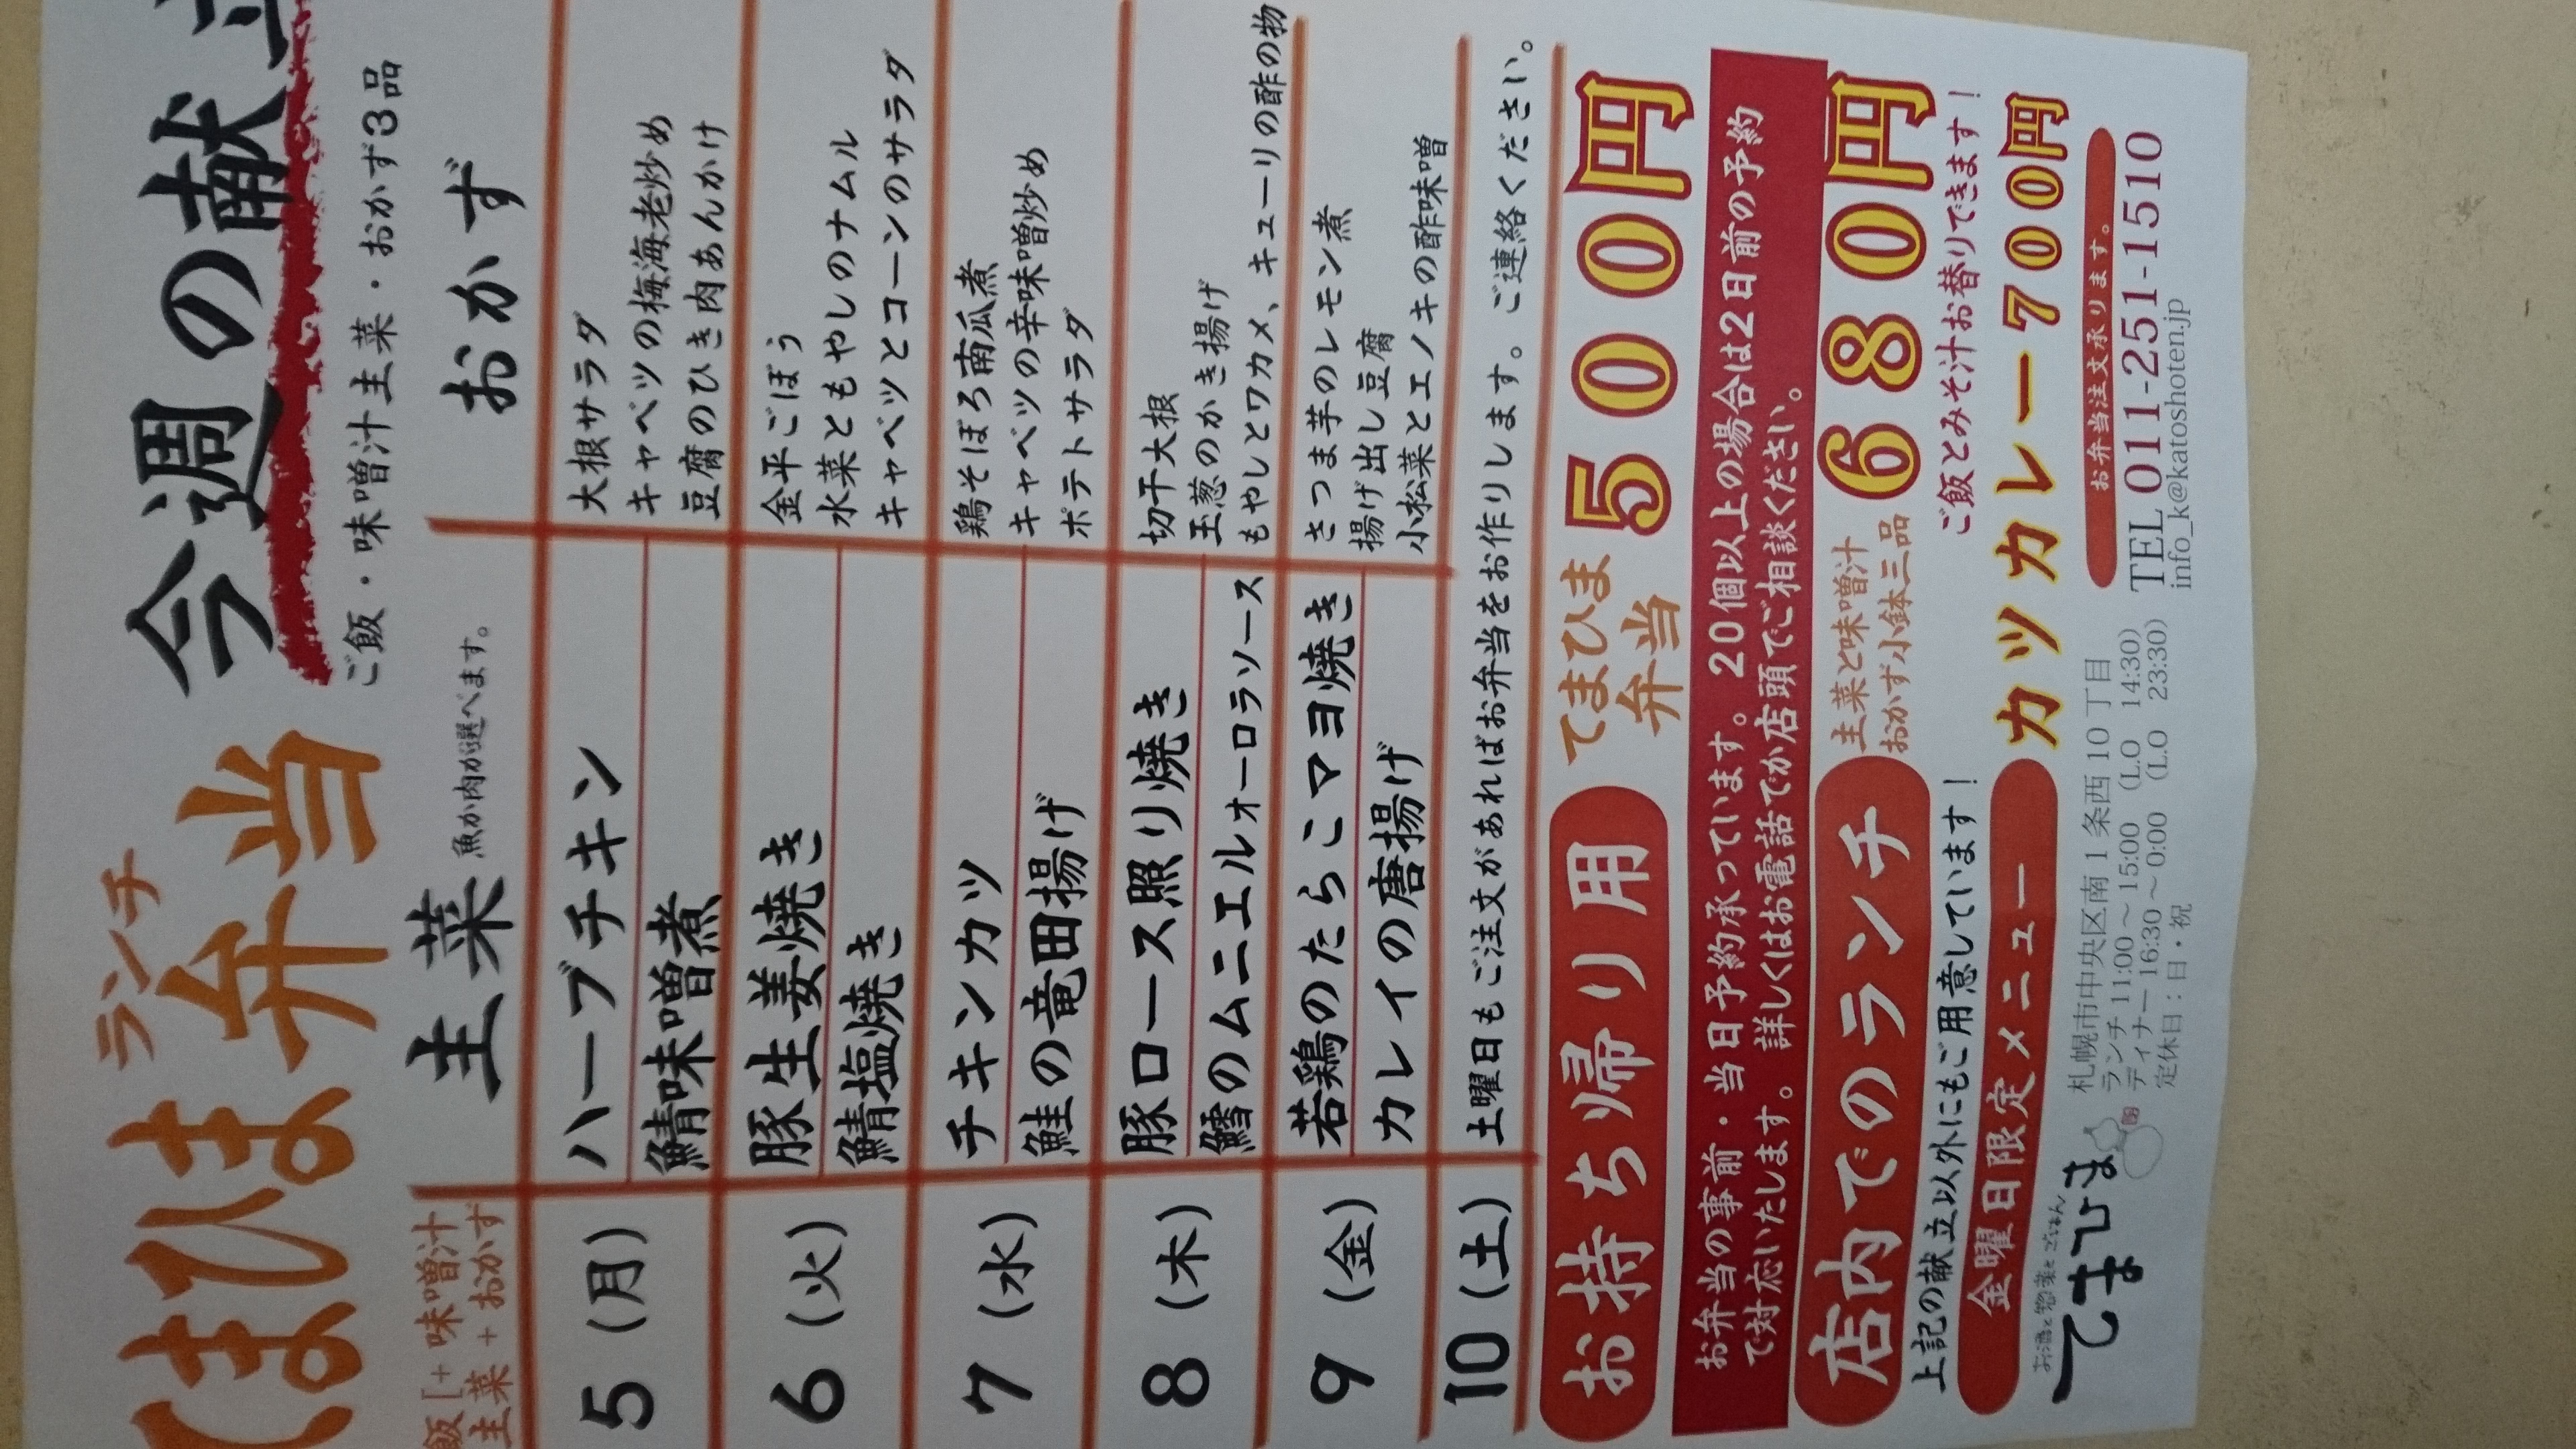 ランチ
てまひま弁当
今週の献立
ご飯・味噌汁主菜・おかず3品
飯[+ 味噌汁
主菜 + おかず
主菜 魚か肉が選べます。
おかず
5 (月)
ハーブチキン
鯖味噌煮
大根サラダ
キャベツの梅海老炒め
豆腐のひき肉あんかけ
6 (火)
豚生姜焼き
鯖塩焼き
金平ごぼう
水菜ともやしのナムル
キャベツとコーンのサラダ
7 (水)
チキンカツ
鮭の竜田揚げ
鶏そぼろ南瓜煮
キャベツの辛味噌炒め
ポテトサラダ
8 (木)
豚ロース照り焼き
鱈のムニエルオーロラソース
切干大根
玉葱のかき揚げ
もやしとワカメ、キューリの酢の物
9 (金)
若鶏のたらこマヨ焼き
カレイの唐揚げ
さつま芋のレモン煮
揚げ出し豆腐
小松菜とエノキの酢味噌
10 (土)
土曜日もご注文があればお弁当をお作りします。ご連絡ください。
お持ち帰り用
てまひま
弁当
500円
お弁当の事前・当日予約承っています。20個以上の場合は2日前の予約
で対応いたします。詳しくはお電話でか店頭でご相談ください。
店内でのランチ
主菜と味噌汁
おかず小鉢三品
680円
上記の献立以外にもご用意しています!
ご飯とみそ汁お替りできます!
金曜日限定メニュー
カツカレー700円
お酒と惣菜とごはん
てまひま
札幌市中央区南1条西10丁目
ランチ 11:00～15:00 (L.O 14:30)
ディナー 16:30～0:00 (L.O 23:30)
定休日:日・祝
お弁当注文承ります。
TEL 011-251-1510
info_k@katoshoten.jp